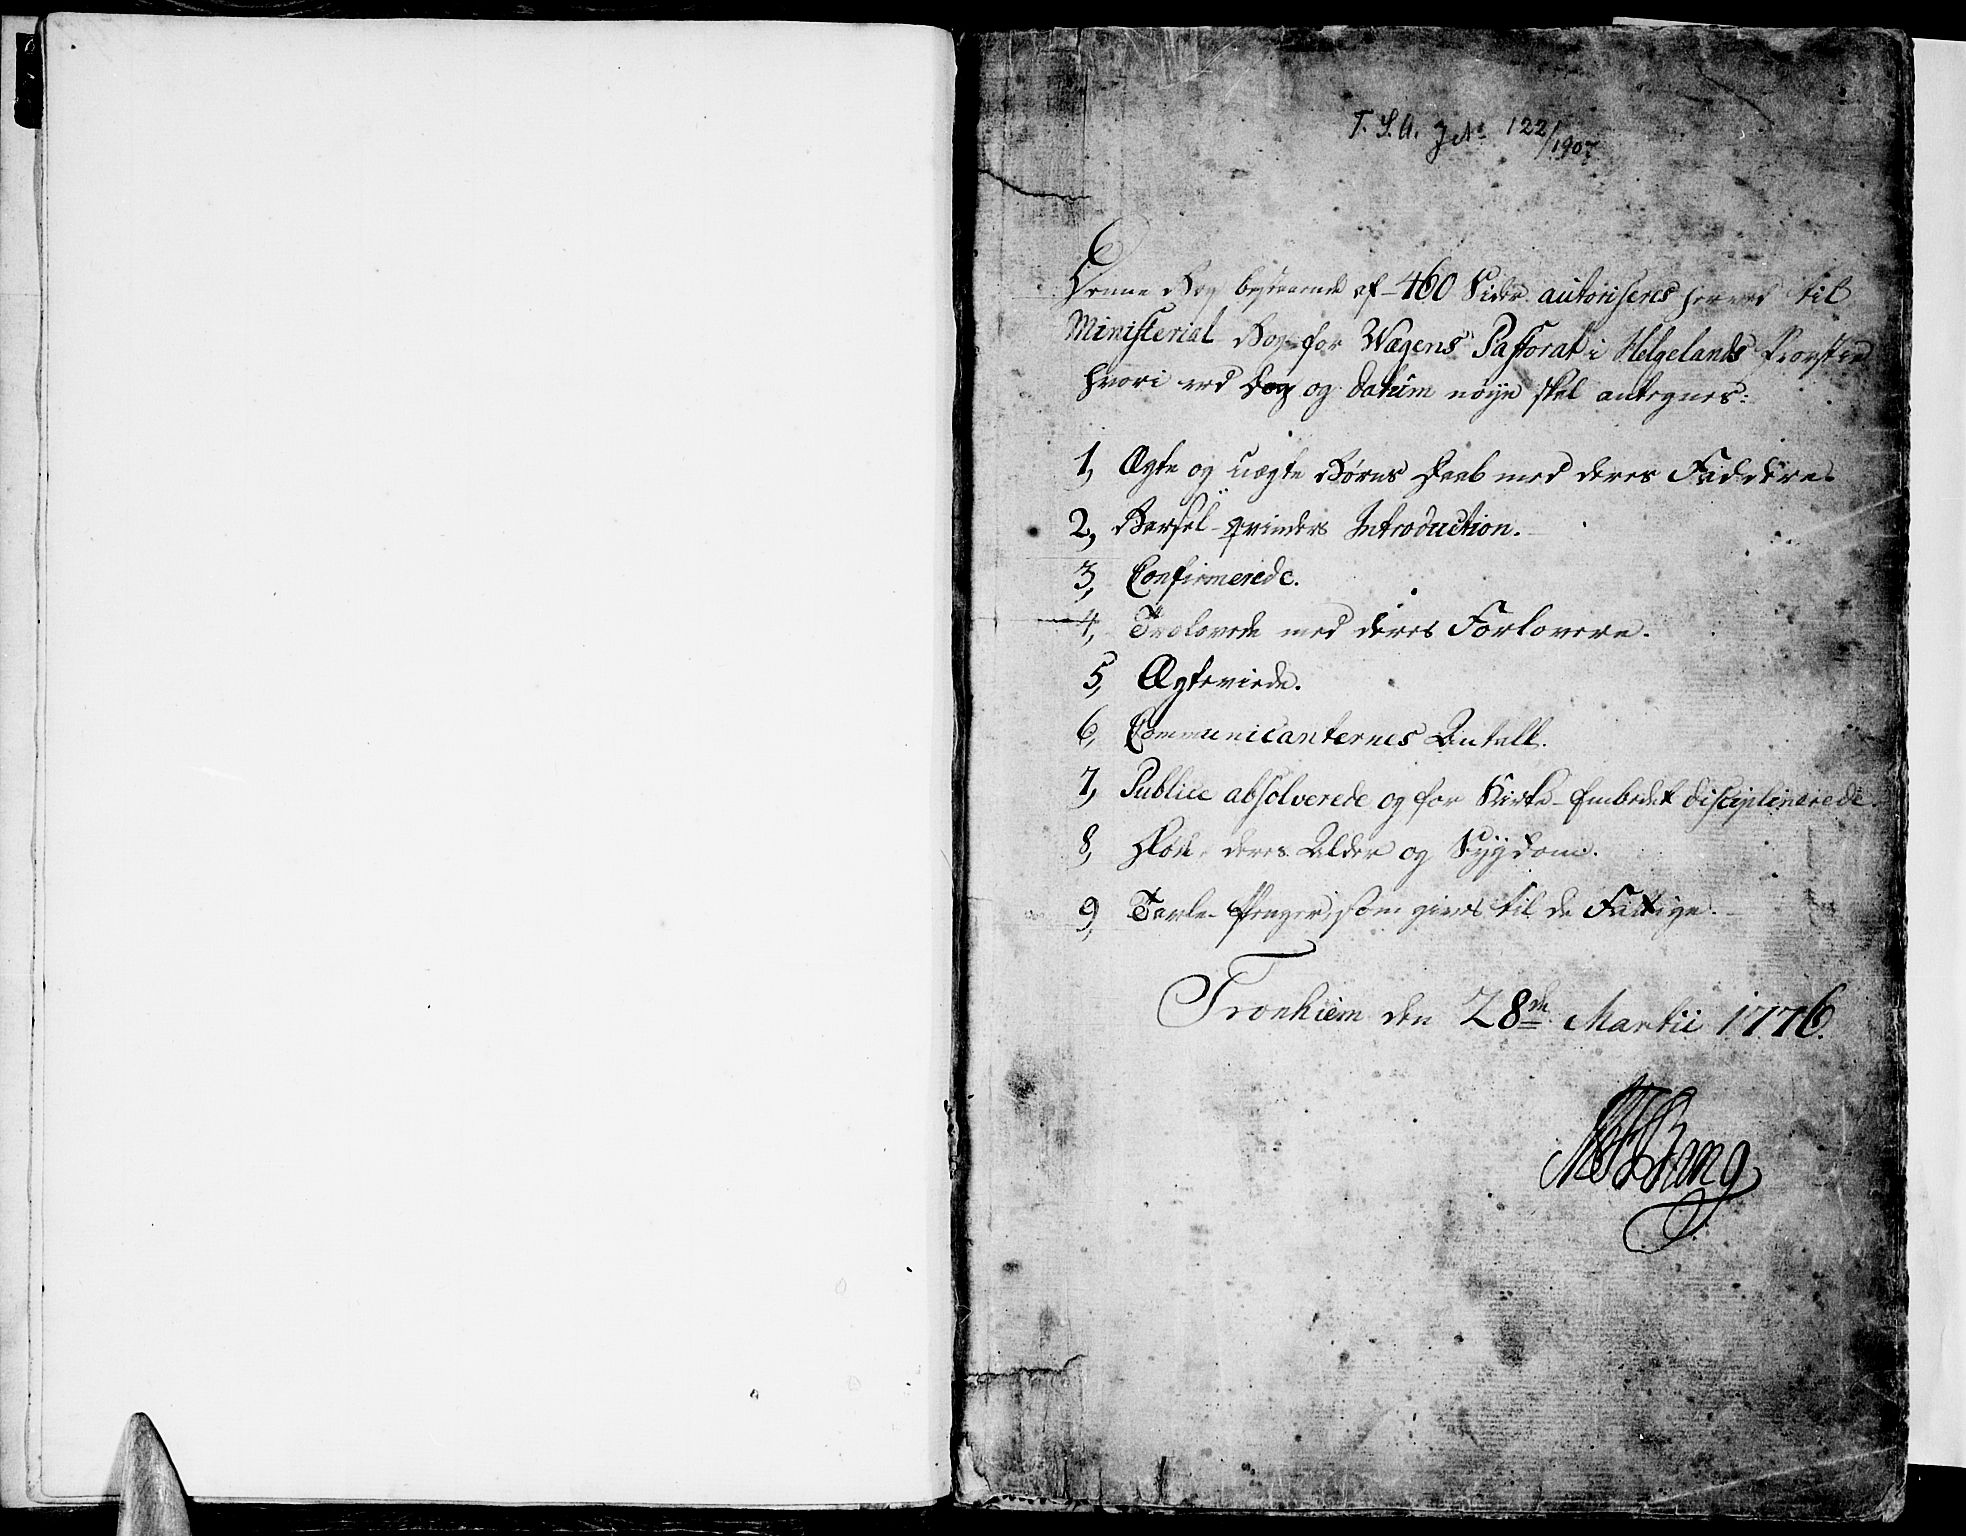 T. S. A. J. № 122/1907
Denne Bog bestaaende af 460 Sider autoriseres herved til
Ministerial Bog for Wægens Pastorat i Helgelands Provstie
hvori ved Dag og Datum nøye skal antegnes:
1, Ægte og uægte Børns Daab med deres Faddere.
2, Barsel-Qvinders Introduction.
3, Confirmerede.
4, Trolovede med deres Forlovere.
5, Ægteviede.
6, Communicanternes Antall.
7, Publice absolverede og for Kirke-Embedet disciplinerede.
8, Døde, deres Alder og Sygdom.
9, Tavle-Penger, som gives til de Fattige.
Tronhiem den 28de Martii 1776.
Bang